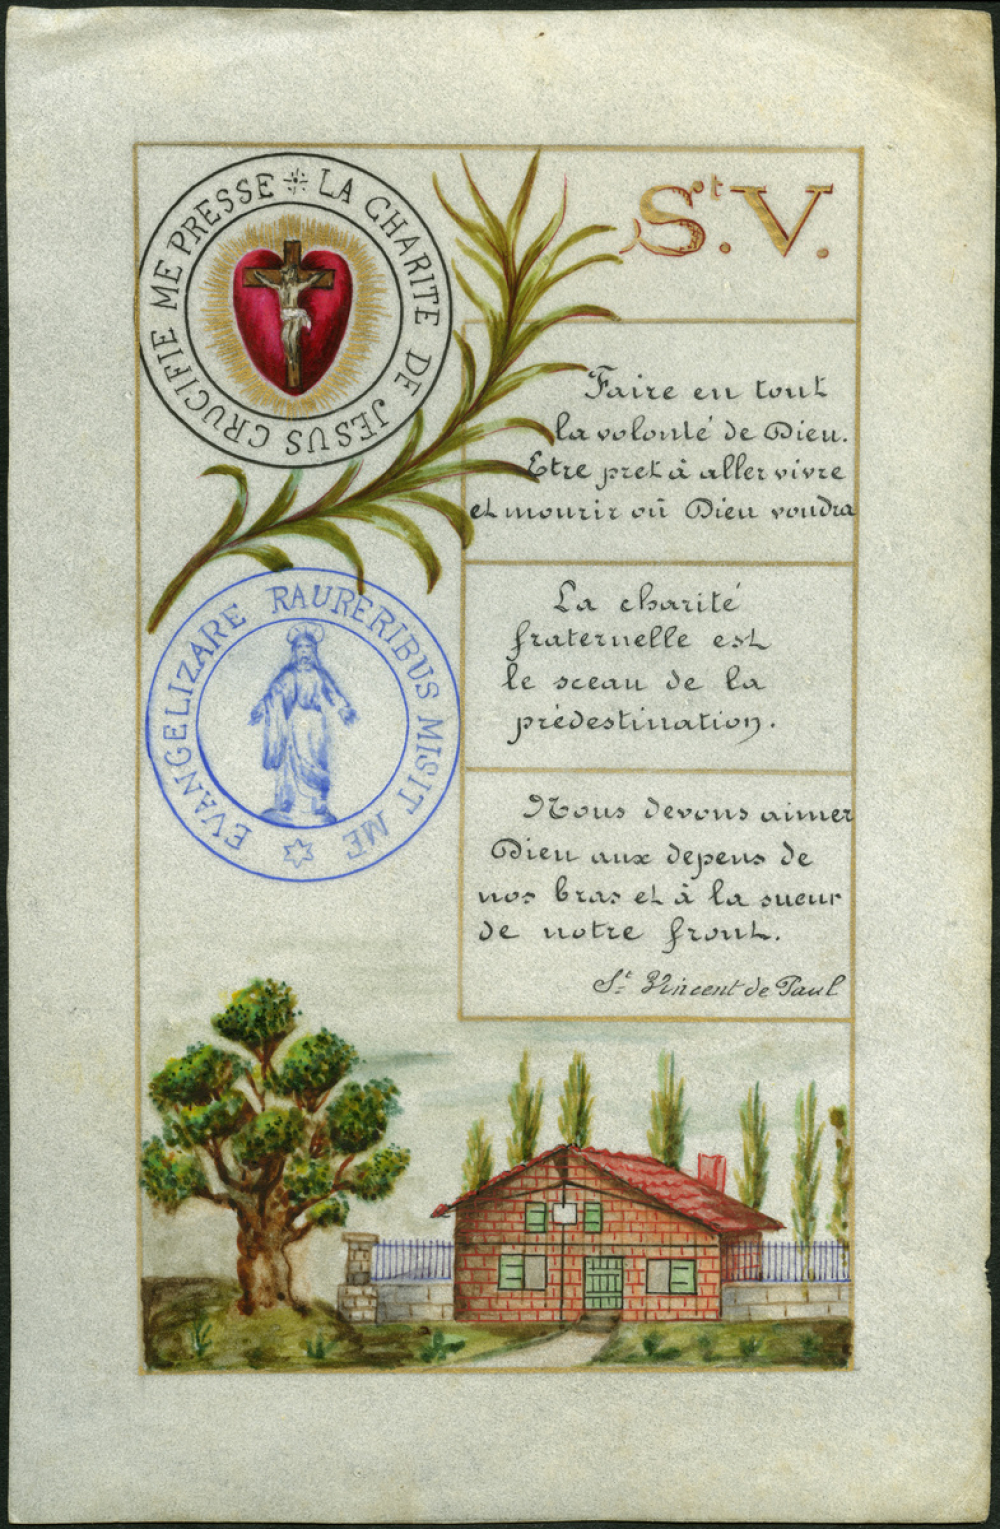 LA CHARITE DE JESUS CRUCIFIE ME PRESSE
St. V.
Faire en tout
la volonté de Dieu.
Etre pret à aller vivre
et mourir où Dieu voudra
EVANGELIZARE RAURERIBUS MISIT ME
La charité
fraternelle est
le sceau de la
prédestination.
Nous devons aimer
Dieu aux depens de
nos bras et à la sueur
de notre front.
St Vincent de Paul